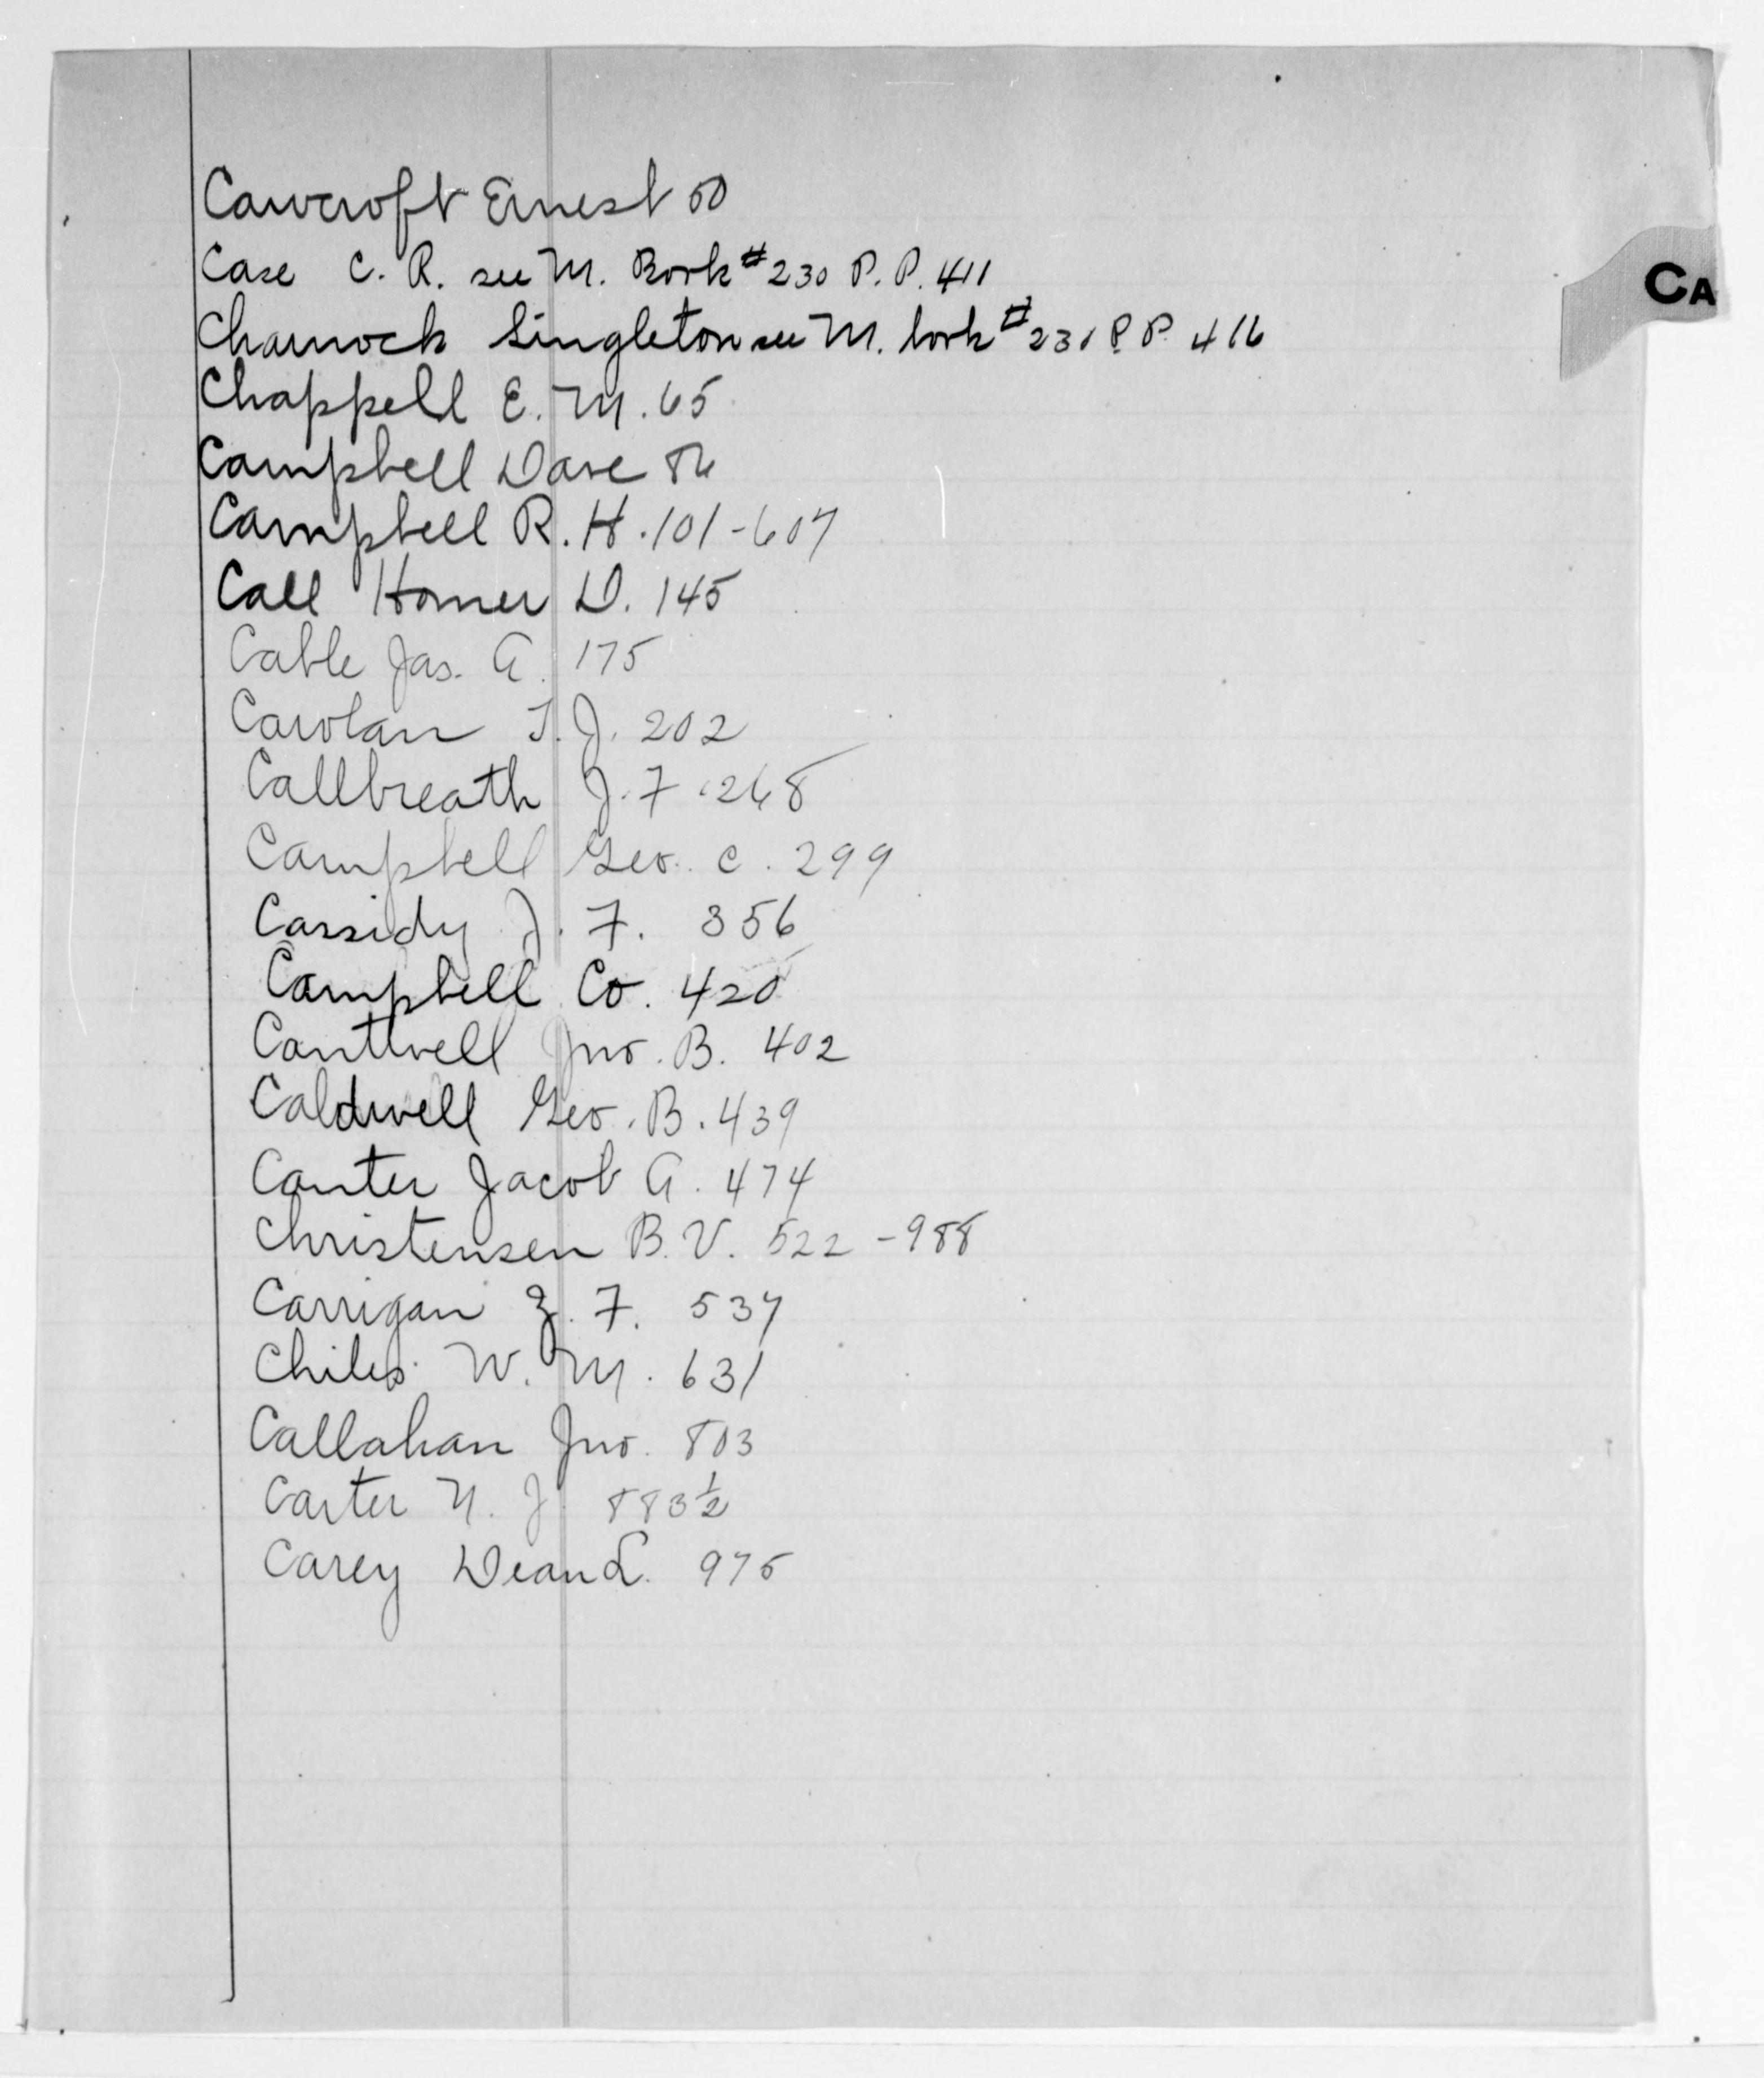 CA
Cawcroft Ernest 50
Case C. R. see M. Book #230 P.P. 411
Charnock Singleton see M. book #231 P.P. 416
Chappell E. M. 65
Campbell Dave 86
Campbell R. H. 101-607
Call Homer D. 145
Cable Jas. A. 175
Carolan T. J. 202
Callbreath J. F. 268
Campbell Geo. C. 299
Cassidy J. F. 356
Campbell Co. 420
Canttwell Jno. B. 402
Caldwell Geo. B. 439
Canter Jacob A. 474
Christensen B. V. 522-988
Carrigan Z. F. 537
Chiles W. M. 631
Callahan Jno. 803
Carter N. J. 883½
Carey Dean L. 975